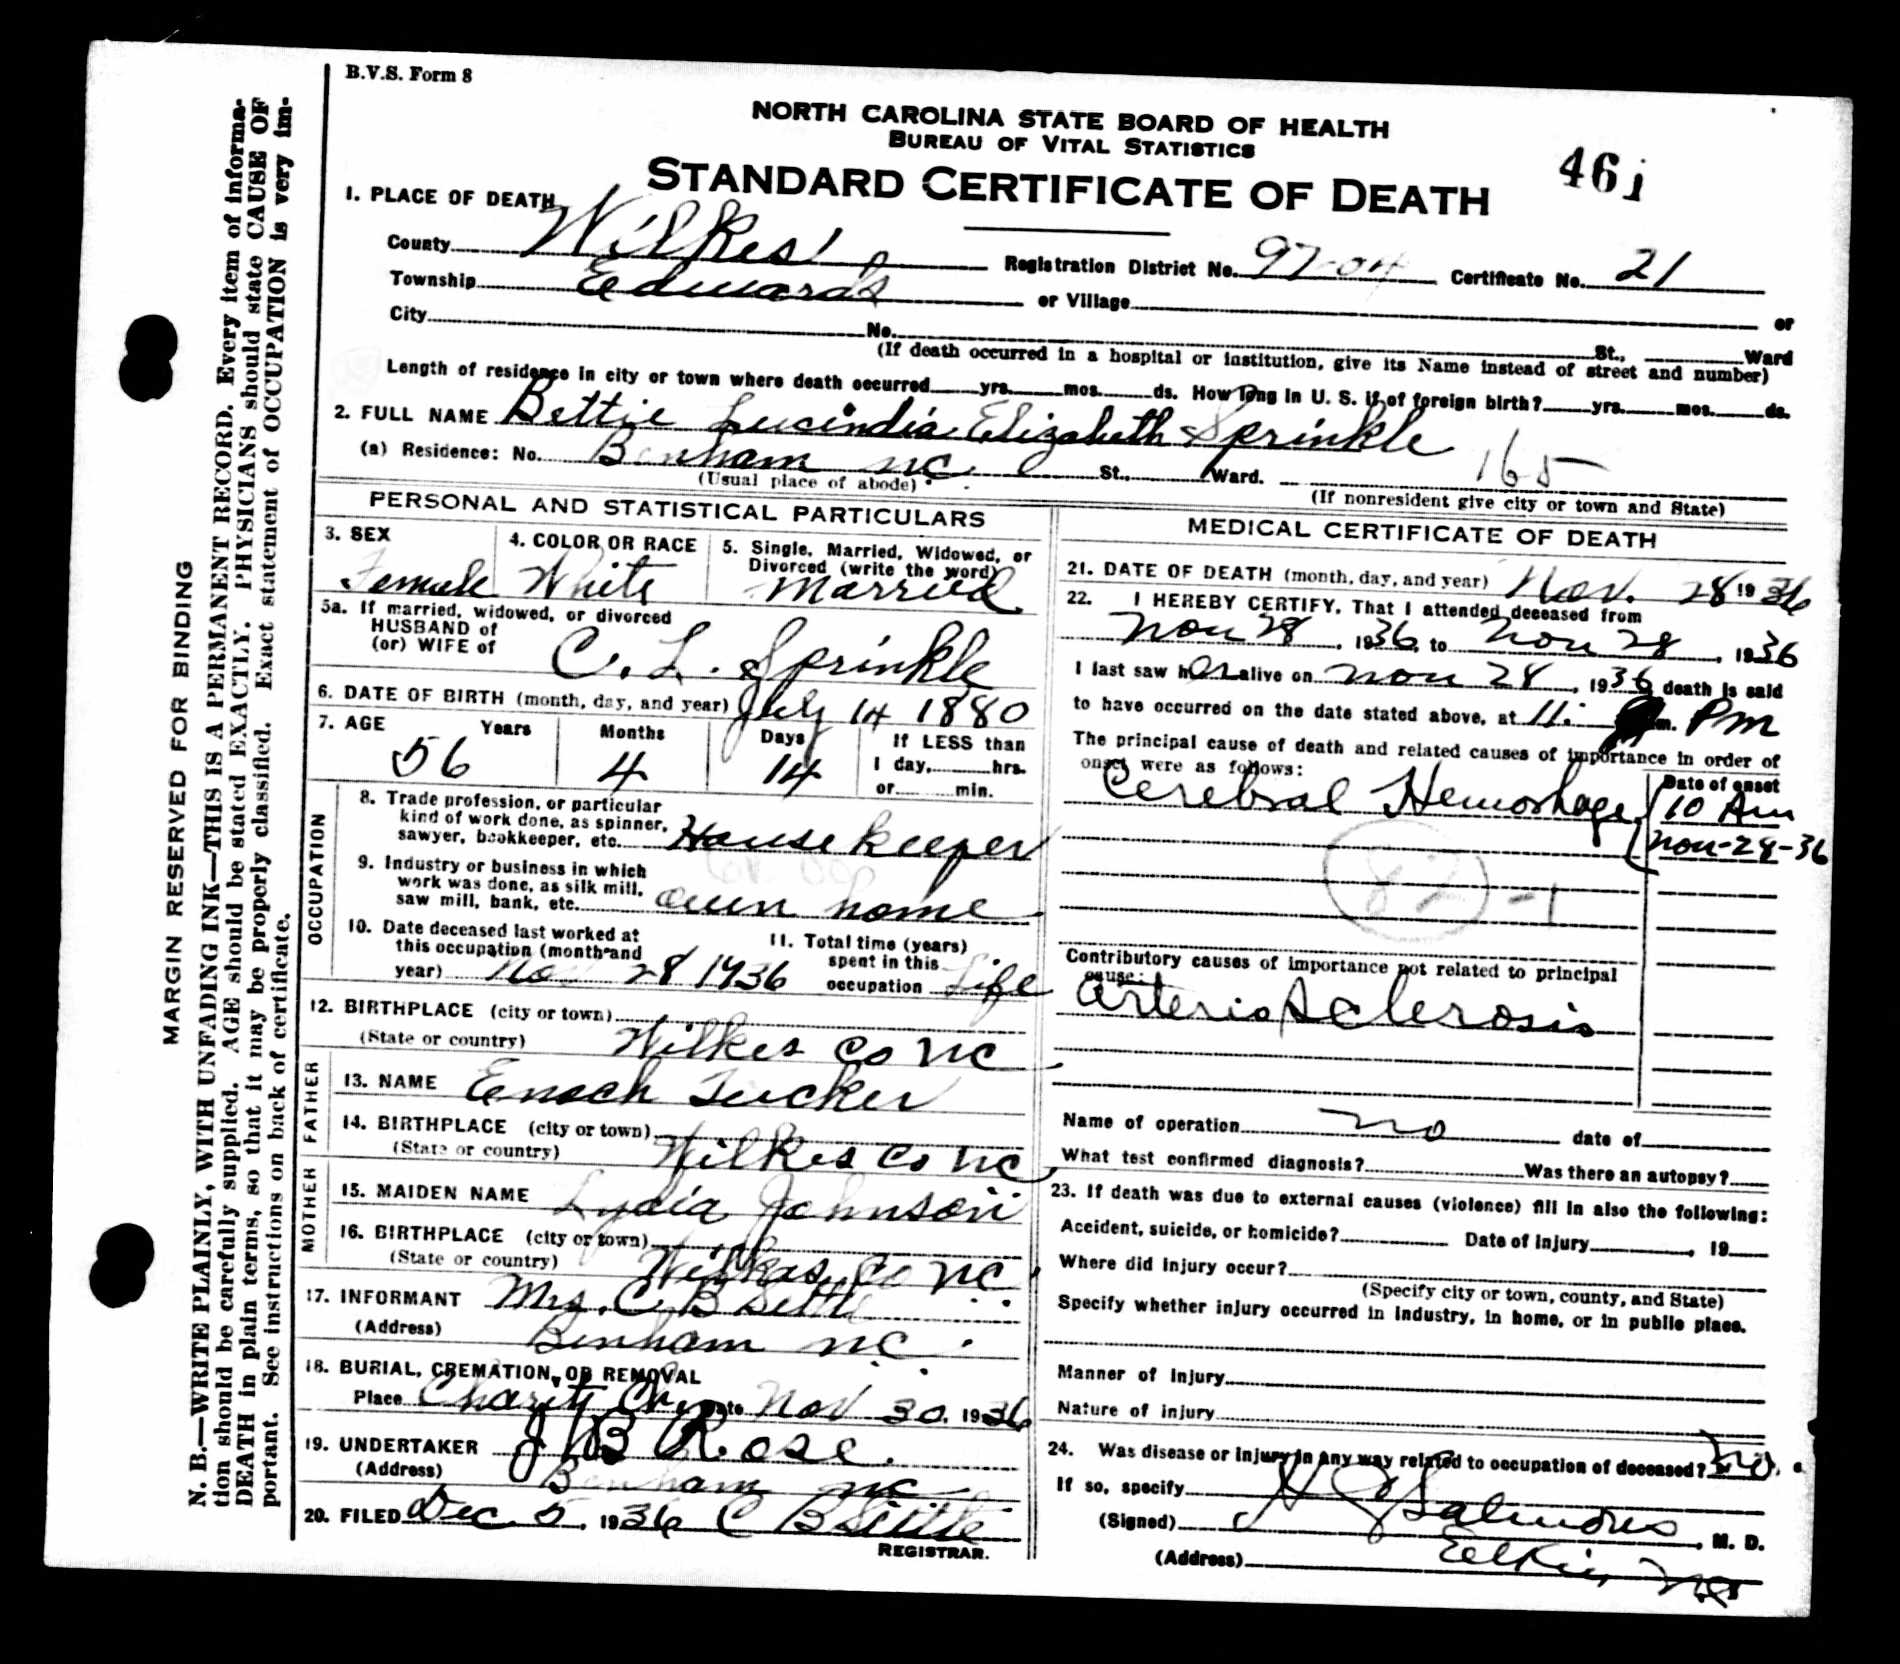 B.V.S. Form 8
NORTH CAROLINA STATE BOARD OF HEALTH
BUREAU OF VITAL STATISTICS
STANDARD CERTIFICATE OF DEATH
46j
1. PLACE OF DEATH
County Wilkes Registration District No. 97-04 Certificate No. 21
Township Edwards or Village or
City No. St., Ward
(If death occurred in a hospital or institution, give its Name instead of street and number)
Length of residence in city or town where death occurred yrs. mos. ds. How long in U. S. if of foreign birth? yrs. mos. ds.
2. FULL NAME Bettie Lucindia Elizabeth Sprinkle
(a) Residence: No. Benham NC St., Ward. 165
(Usual place of abode) (If nonresident give city or town and State)
PERSONAL AND STATISTICAL PARTICULARS
3. SEX Female
4. COLOR OR RACE White
5. Single, Married, Widowed, or
Divorced (write the word) Married
5a. If married, widowed, or divorced
HUSBAND of
(or) WIFE of C. L. Sprinkle
6. DATE OF BIRTH (month, day, and year) July 14 1880
7. AGE Years Months Days If LESS than
56 4 14 1 day, hrs.
or min.
OCCUPATION
8. Trade profession, or particular
kind of work done, as spinner,
sawyer, bookkeeper, etc. House Keeper
9. Industry or business in which
work was done, as silk mill,
saw mill, bank, etc. own home
10. Date deceased last worked at
this occupation (month and
year) Nov 28 1936
11. Total time (years)
spent in this
occupation Life
12. BIRTHPLACE (city or town)
(State or country) Wilkes Co NC
FATHER
13. NAME Enoch Tucker
14. BIRTHPLACE (city or town)
(State or country) Wilkes Co NC
MOTHER
15. MAIDEN NAME Lydia Johnson
16. BIRTHPLACE (city or town)
(State or country) Wilkes Co NC
17. INFORMANT Mrs. C B Settle
(Address) Benham NC
18. BURIAL, CREMATION, OR REMOVAL
Place Charity Ch. Date Nov 30, 1936
19. UNDERTAKER J B Rose
(Address) Benham NC
20. FILED Dec. 5, 1936 C B Settle
REGISTRAR.
MEDICAL CERTIFICATE OF DEATH
21. DATE OF DEATH (month, day, and year) Nov. 28 1936
22. I HEREBY CERTIFY, That I attended deceased from
Nov 28, 1936, to Nov 28, 1936
I last saw her alive on Nov 28, 1936 death is said
to have occurred on the date stated above, at 11: m. Pm
The principal cause of death and related causes of importance in order of
onset were as follows:
Date of onset
Cerebral Hemorhage 10 Am
Nov-28-36
82 -1
Contributory causes of importance not related to principal
cause:
Arterio Sclerosis
Name of operation no date of
What test confirmed diagnosis? Was there an autopsy?
23. If death was due to external causes (violence) fill in also the following:
Accident, suicide, or homicide? Date of injury , 19
Where did injury occur?
(Specify city or town, county, and State)
Specify whether injury occurred in industry, in home, or in public place.
Manner of injury
Nature of injury
24. Was disease or injury in any way related to occupation of deceased? no.
If so, specify
(Signed) Salmons, M. D.
(Address) Elkin, NC
MARGIN RESERVED FOR BINDING
N. B.—WRITE PLAINLY, WITH UNFADING INK—THIS IS A PERMANENT RECORD. Every item of informa-
tion should be carefully supplied. AGE should be stated EXACTLY. PHYSICIANS should state CAUSE OF
DEATH in plain terms, so that it may be properly classified. Exact statement of OCCUPATION is very im-
portant. See instructions on back of certificate.